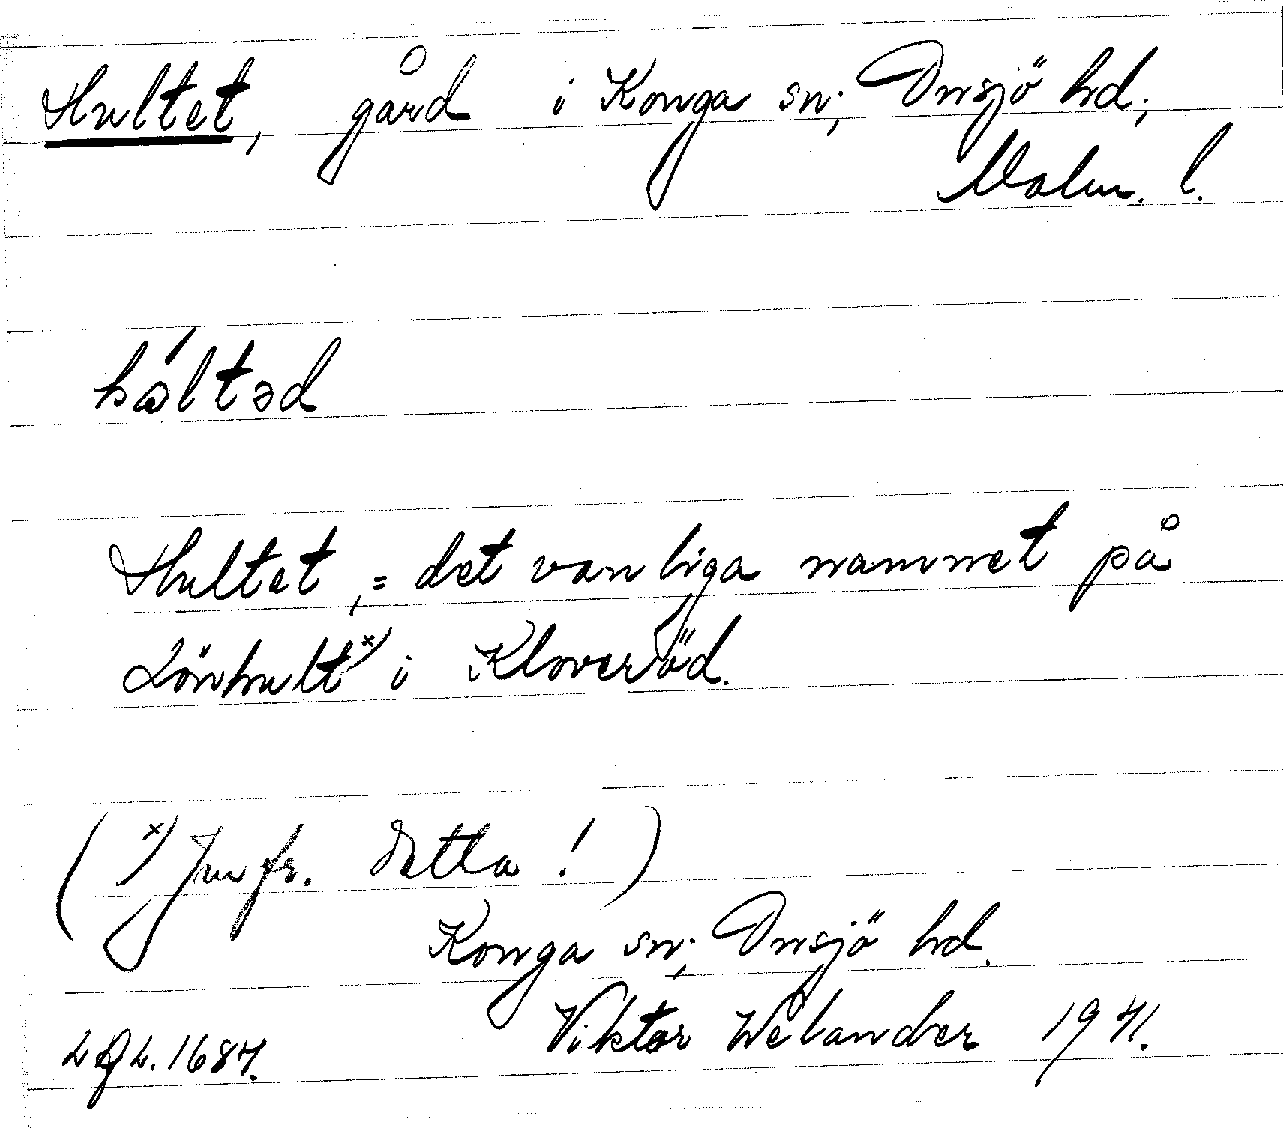 Hultet, gård i Konga sn; Onsjö hd;
Malm. l.
háltəd
Hultet, = det vanliga namnet på
Lönhult x) i Kloveröd.
( x) Jmfr. detta ! )
Konga sn; Onsjö hd.
Viktor Welander 1941.